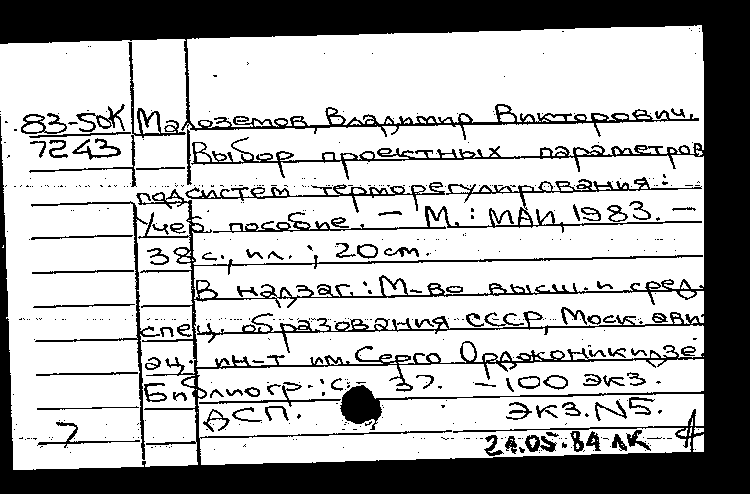 83-50К Малоземов, Владимир Викторович.
7243 Выбор проектных параметров
подсистем терморегулирования:
Учеб. пособие. — М.: МАИ, 1983. —
38 с., ил.; 20 cm.
В надзаг.: М-во высш. и сред.
спец. образования СССР, Моск. ави
ац. ин-т им. Серго Орджоникидзе.
Библиогр.: с. 37. — 100 экз.
ДСП. Экз. N5.
7
21.05.84 ЛК